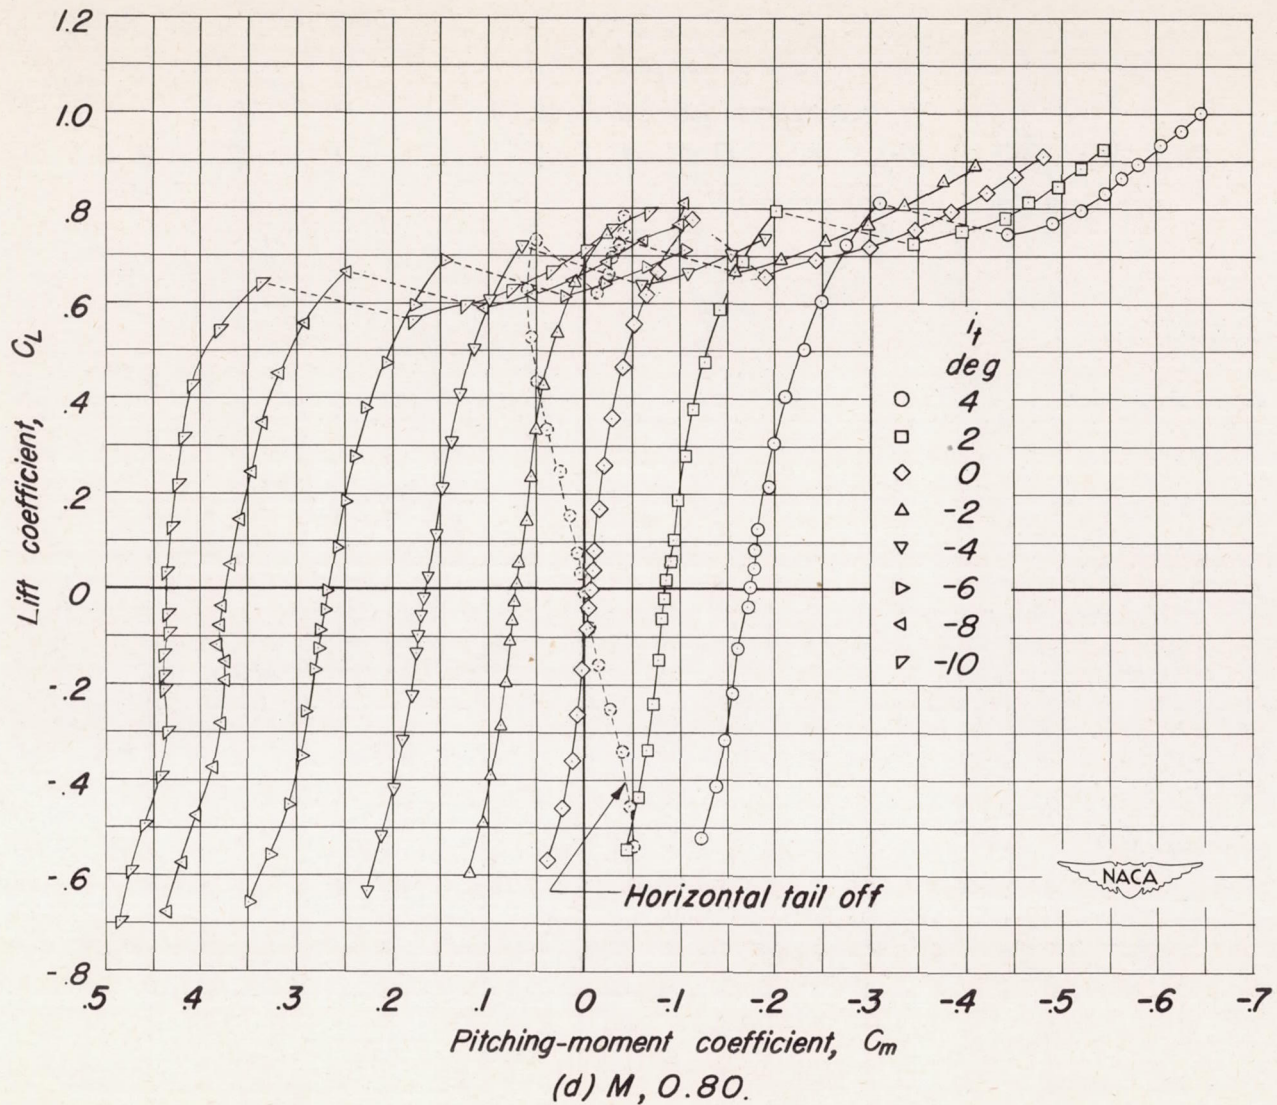 1.2
1.0
.8
.6
.4
.2
0
-.2
-.4
-.6
-.8
Lift coefficient, CL
it
deg
4
2
0
-2
-4
-6
-8
-10
NACA
Horizontal tail off
.5 .4 .3 .2 .1 0 -.1 -.2 -.3 -.4 -.5 -.6 -.7
Pitching-moment coefficient, Cm
(d) M, 0.80.